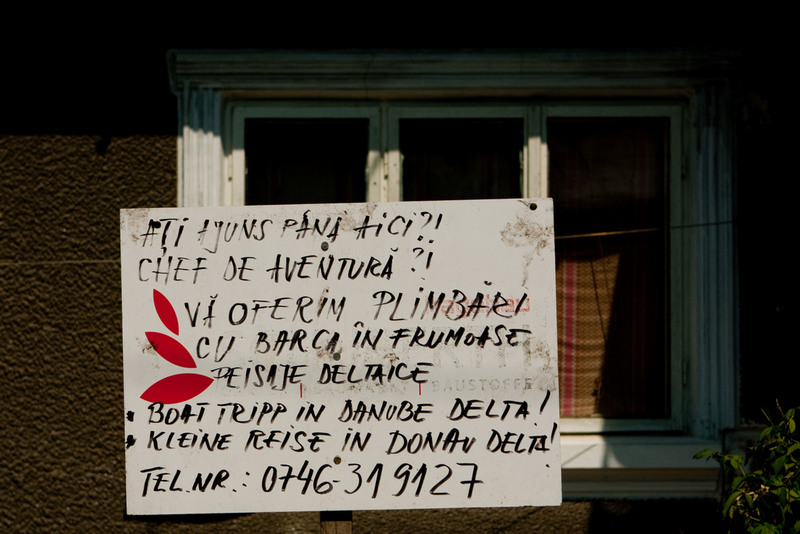 AȚI AJUNS PÂNĂ AICI?!
CHEF DE AVENTURĂ ?!
VĂ OFERIM PLIMBĂRI
CU BARCA ÎN FRUMOASE
PEISAJE DELTAICE
BAUSTOFFE
• BOAT TRIPP IN DANUBE DELTA!
• KLEINE REISE IN DONAU DELTA!
TEL.NR.: 0746-319127